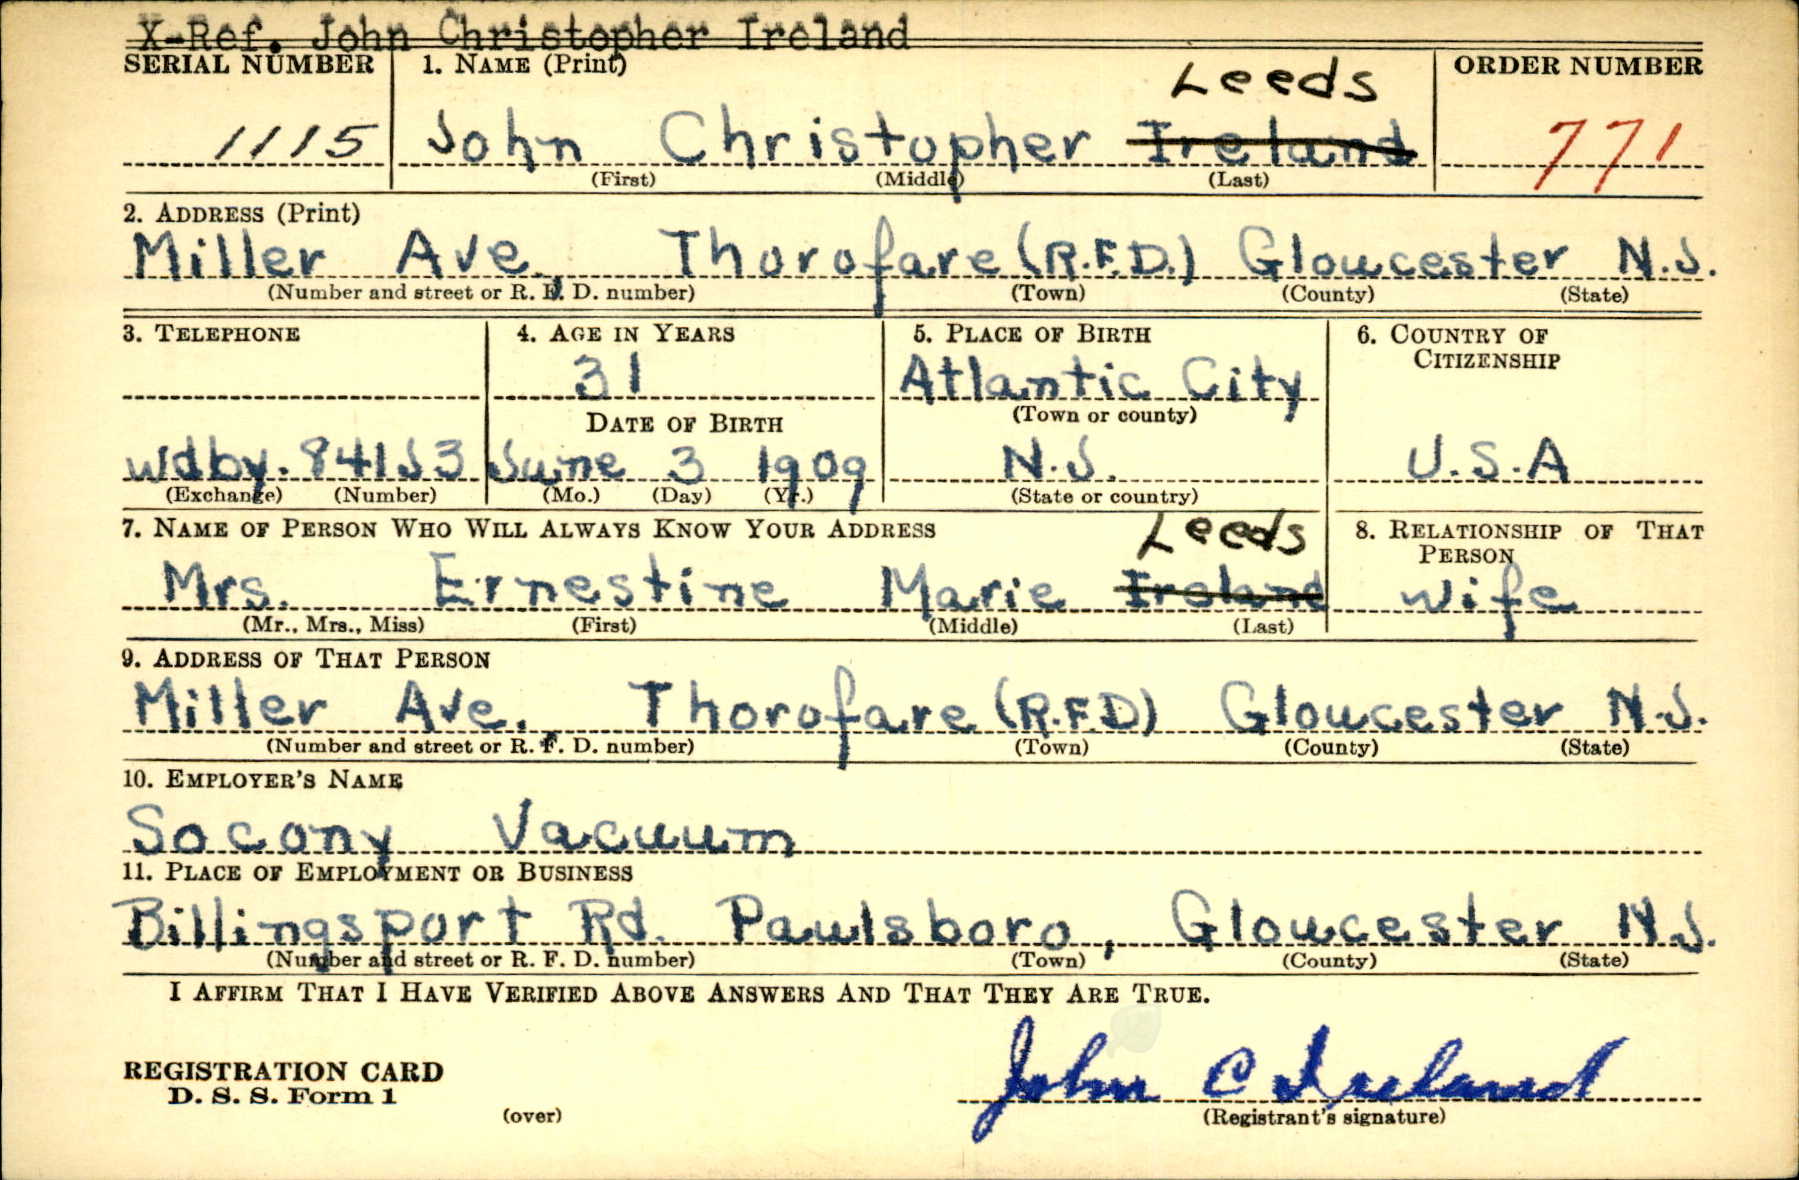 X-Ref. John Christopher Ireland
SERIAL NUMBER 1. NAME (Print) Leeds ORDER NUMBER
1115 John Christopher Ireland 771
(First) (Middle) (Last)
2. ADDRESS (Print)
Miller Ave., Thorofare (R.F.D.) Gloucester N.J.
(Number and street or R. F. D. number) (Town) (County) (State)
3. TELEPHONE 4. AGE IN YEARS 5. PLACE OF BIRTH 6. COUNTRY OF
CITIZENSHIP
31 Atlantic City
DATE OF BIRTH (Town or county)
Wdby. 841J3 June 3 1909 N.J. U.S.A
(Exchange) (Number) (Mo.) (Day) (Yr.) (State or country)
7. NAME OF PERSON WHO WILL ALWAYS KNOW YOUR ADDRESS Leeds 8. RELATIONSHIP OF THAT
PERSON
Mrs. Ernestine Marie Ireland Wife
(Mr., Mrs., Miss) (First) (Middle) (Last)
9. ADDRESS OF THAT PERSON
Miller Ave. Thorofare (R.F.D) Gloucester N.J.
(Number and street or R. F. D. number) (Town) (County) (State)
10. EMPLOYER'S NAME
Socony Vacuum
11. PLACE OF EMPLOYMENT OR BUSINESS
Billingsport Rd. Paulsboro, Gloucester N.J.
(Number and street or R. F. D. number) (Town) (County) (State)
I AFFIRM THAT I HAVE VERIFIED ABOVE ANSWERS AND THAT THEY ARE TRUE.
John C Ireland
REGISTRATION CARD
D. S. S. Form 1
(over) (Registrant's signature)